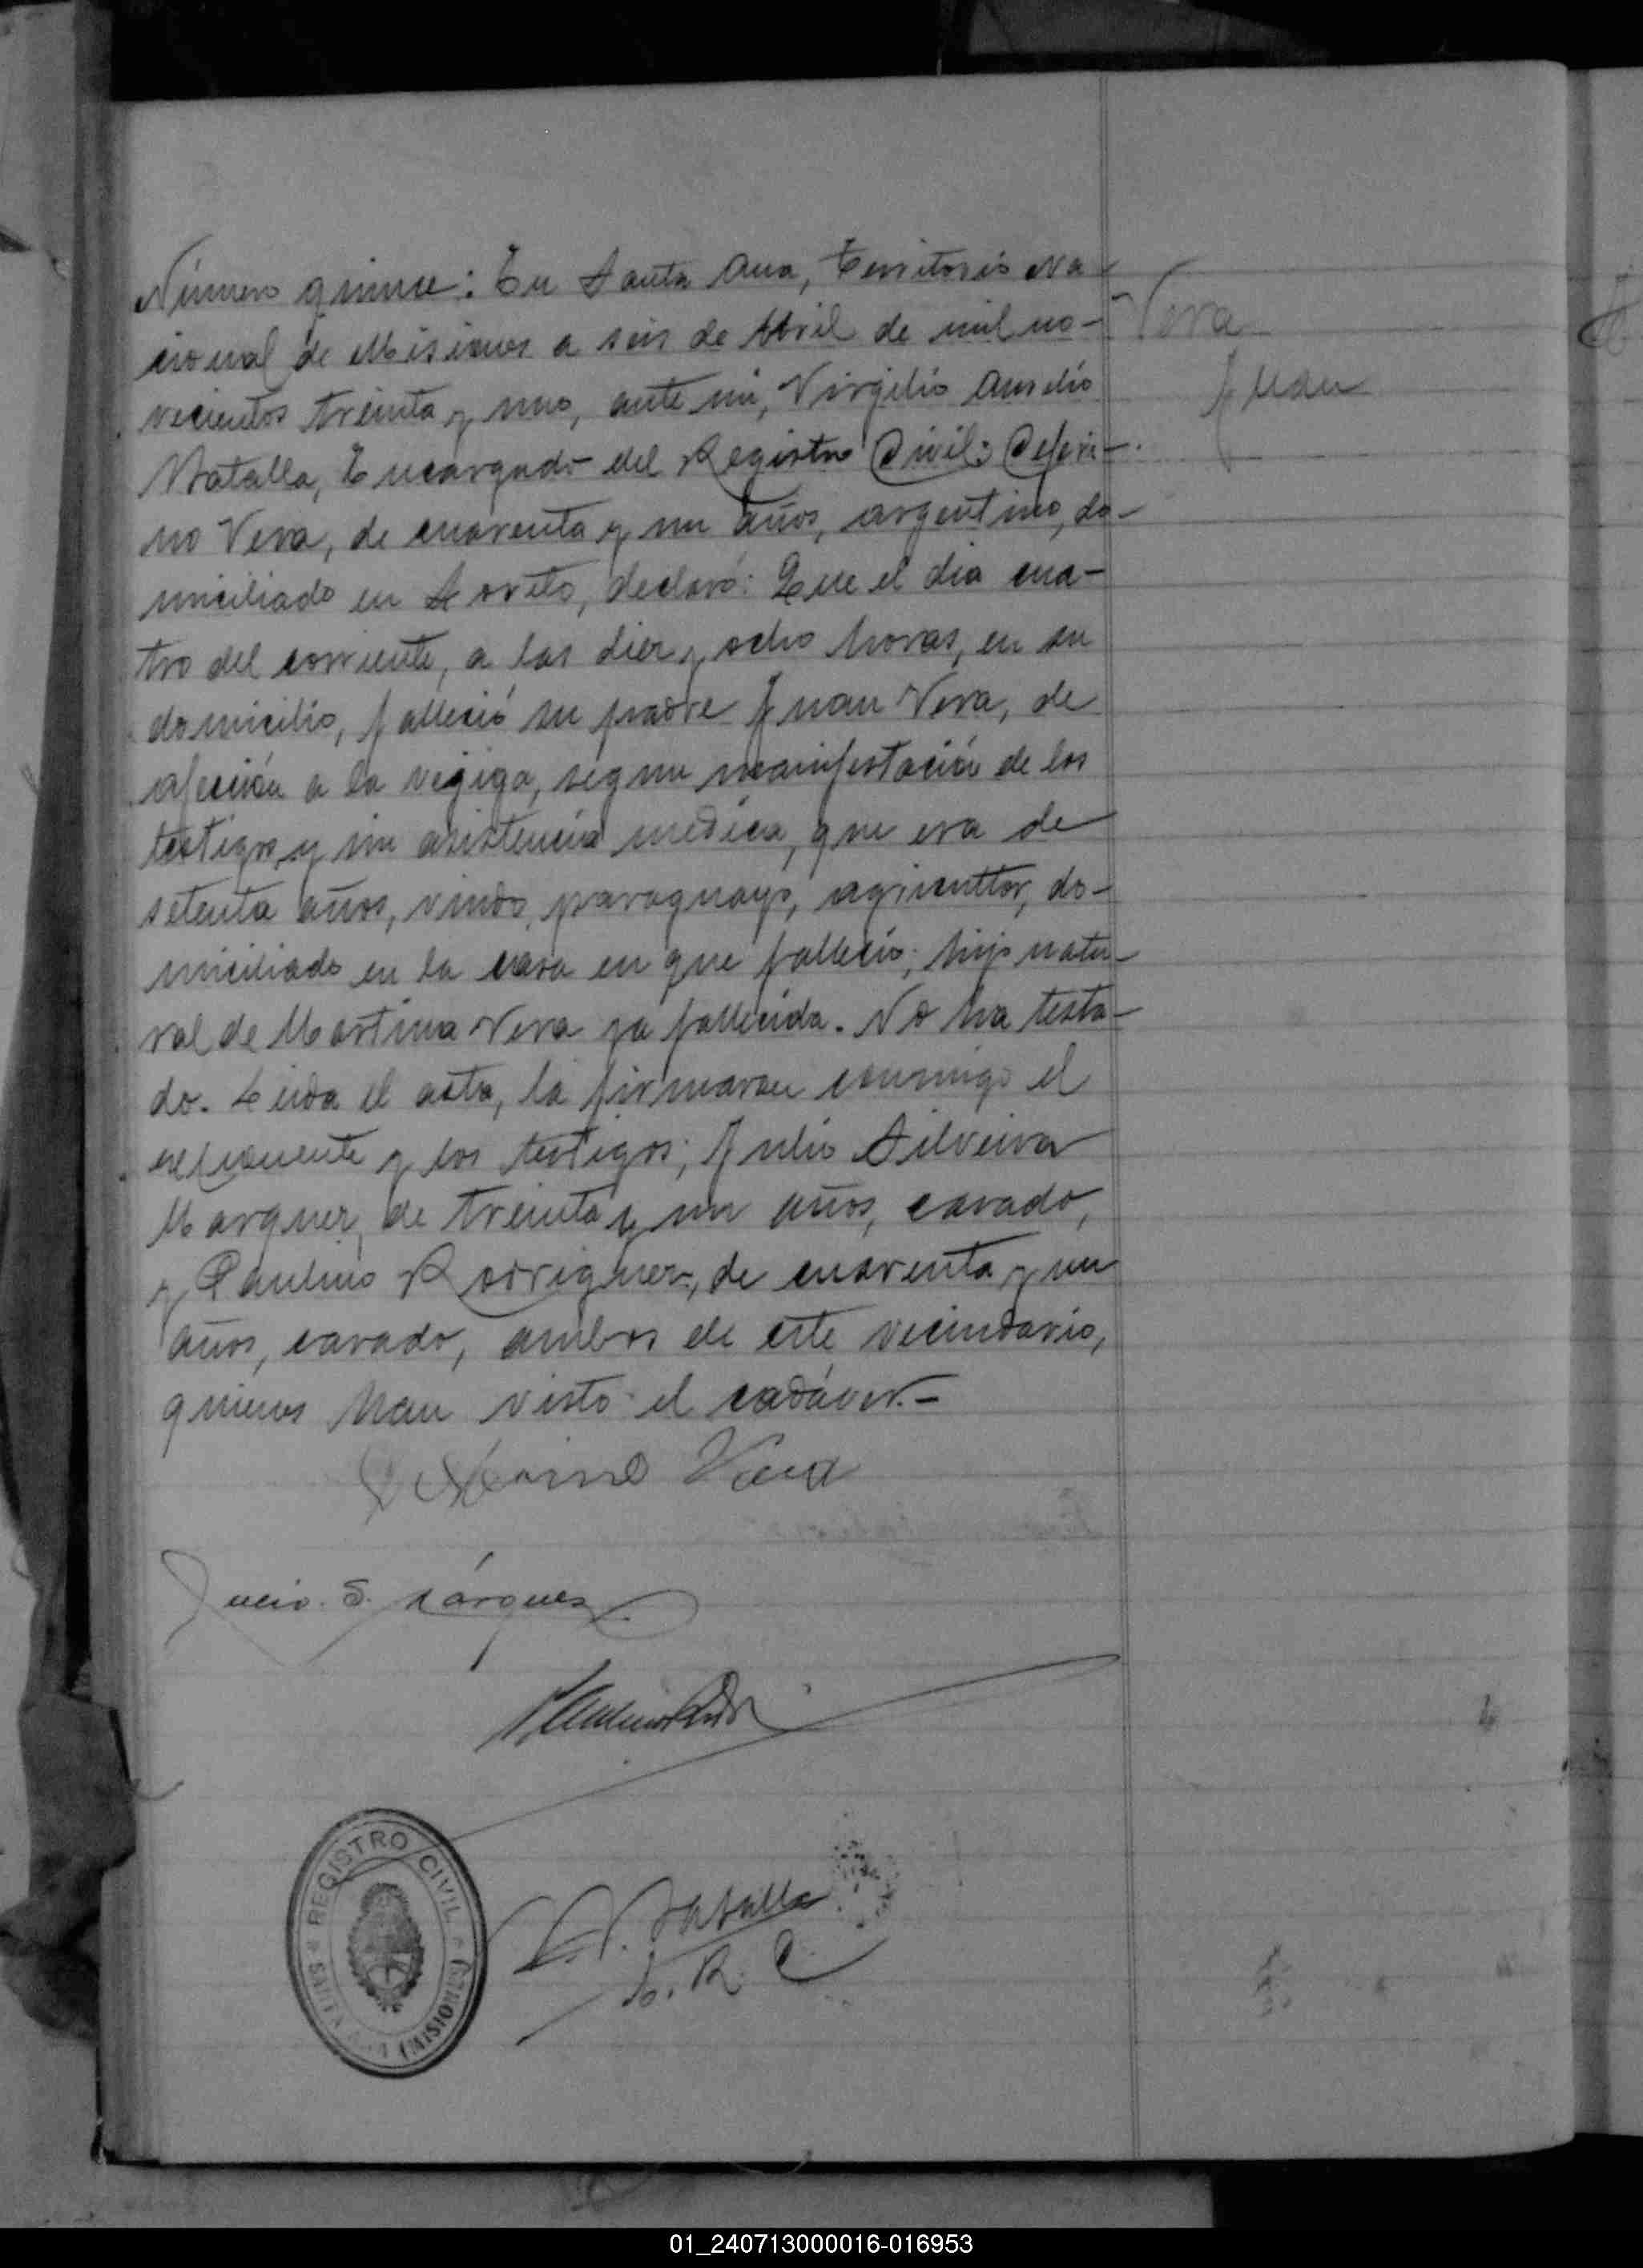 Número quince: En Santa Ana, Territorio Na-
cional de Misiones a seis de Abril de mil no-
vecientos treinta y uno, ante mi, Virgilio Aurelio
Matalla, Encargado del Registro Civil: Ceferi-
no Vera, de cuarenta y un años, argentino, do-
miciliado en Loreto, declaró: Que el dia cua-
tro del corriente, a las diez y ocho horas, en su
domicilio, falleció su padre Juan Vera, de
afección a la vegiga, segun manifestación de los
testigos y sin asistencia médica, que era de
setenta años, viudo, paraguayo, agricultor, do-
miciliado en la casa en que falleció; hijo natu-
ral de Martina Vera ya fallecida. No ha testa-
do. Leida el acta, la firmaron conmigo el
exponente y los testigos; Julio Silveira
Marquez, de treinta y un años, casado,
y Paulino Rodriguez, de cuarenta y un
años, casado, ambos de este vecindario,
quienes han visto el cadáver.-
Vera
Juan
Vera
S. Márquez
E. R. C
REGISTRO CIVIL
SANTA ANA (MISIONES)
01_240713000016-016953